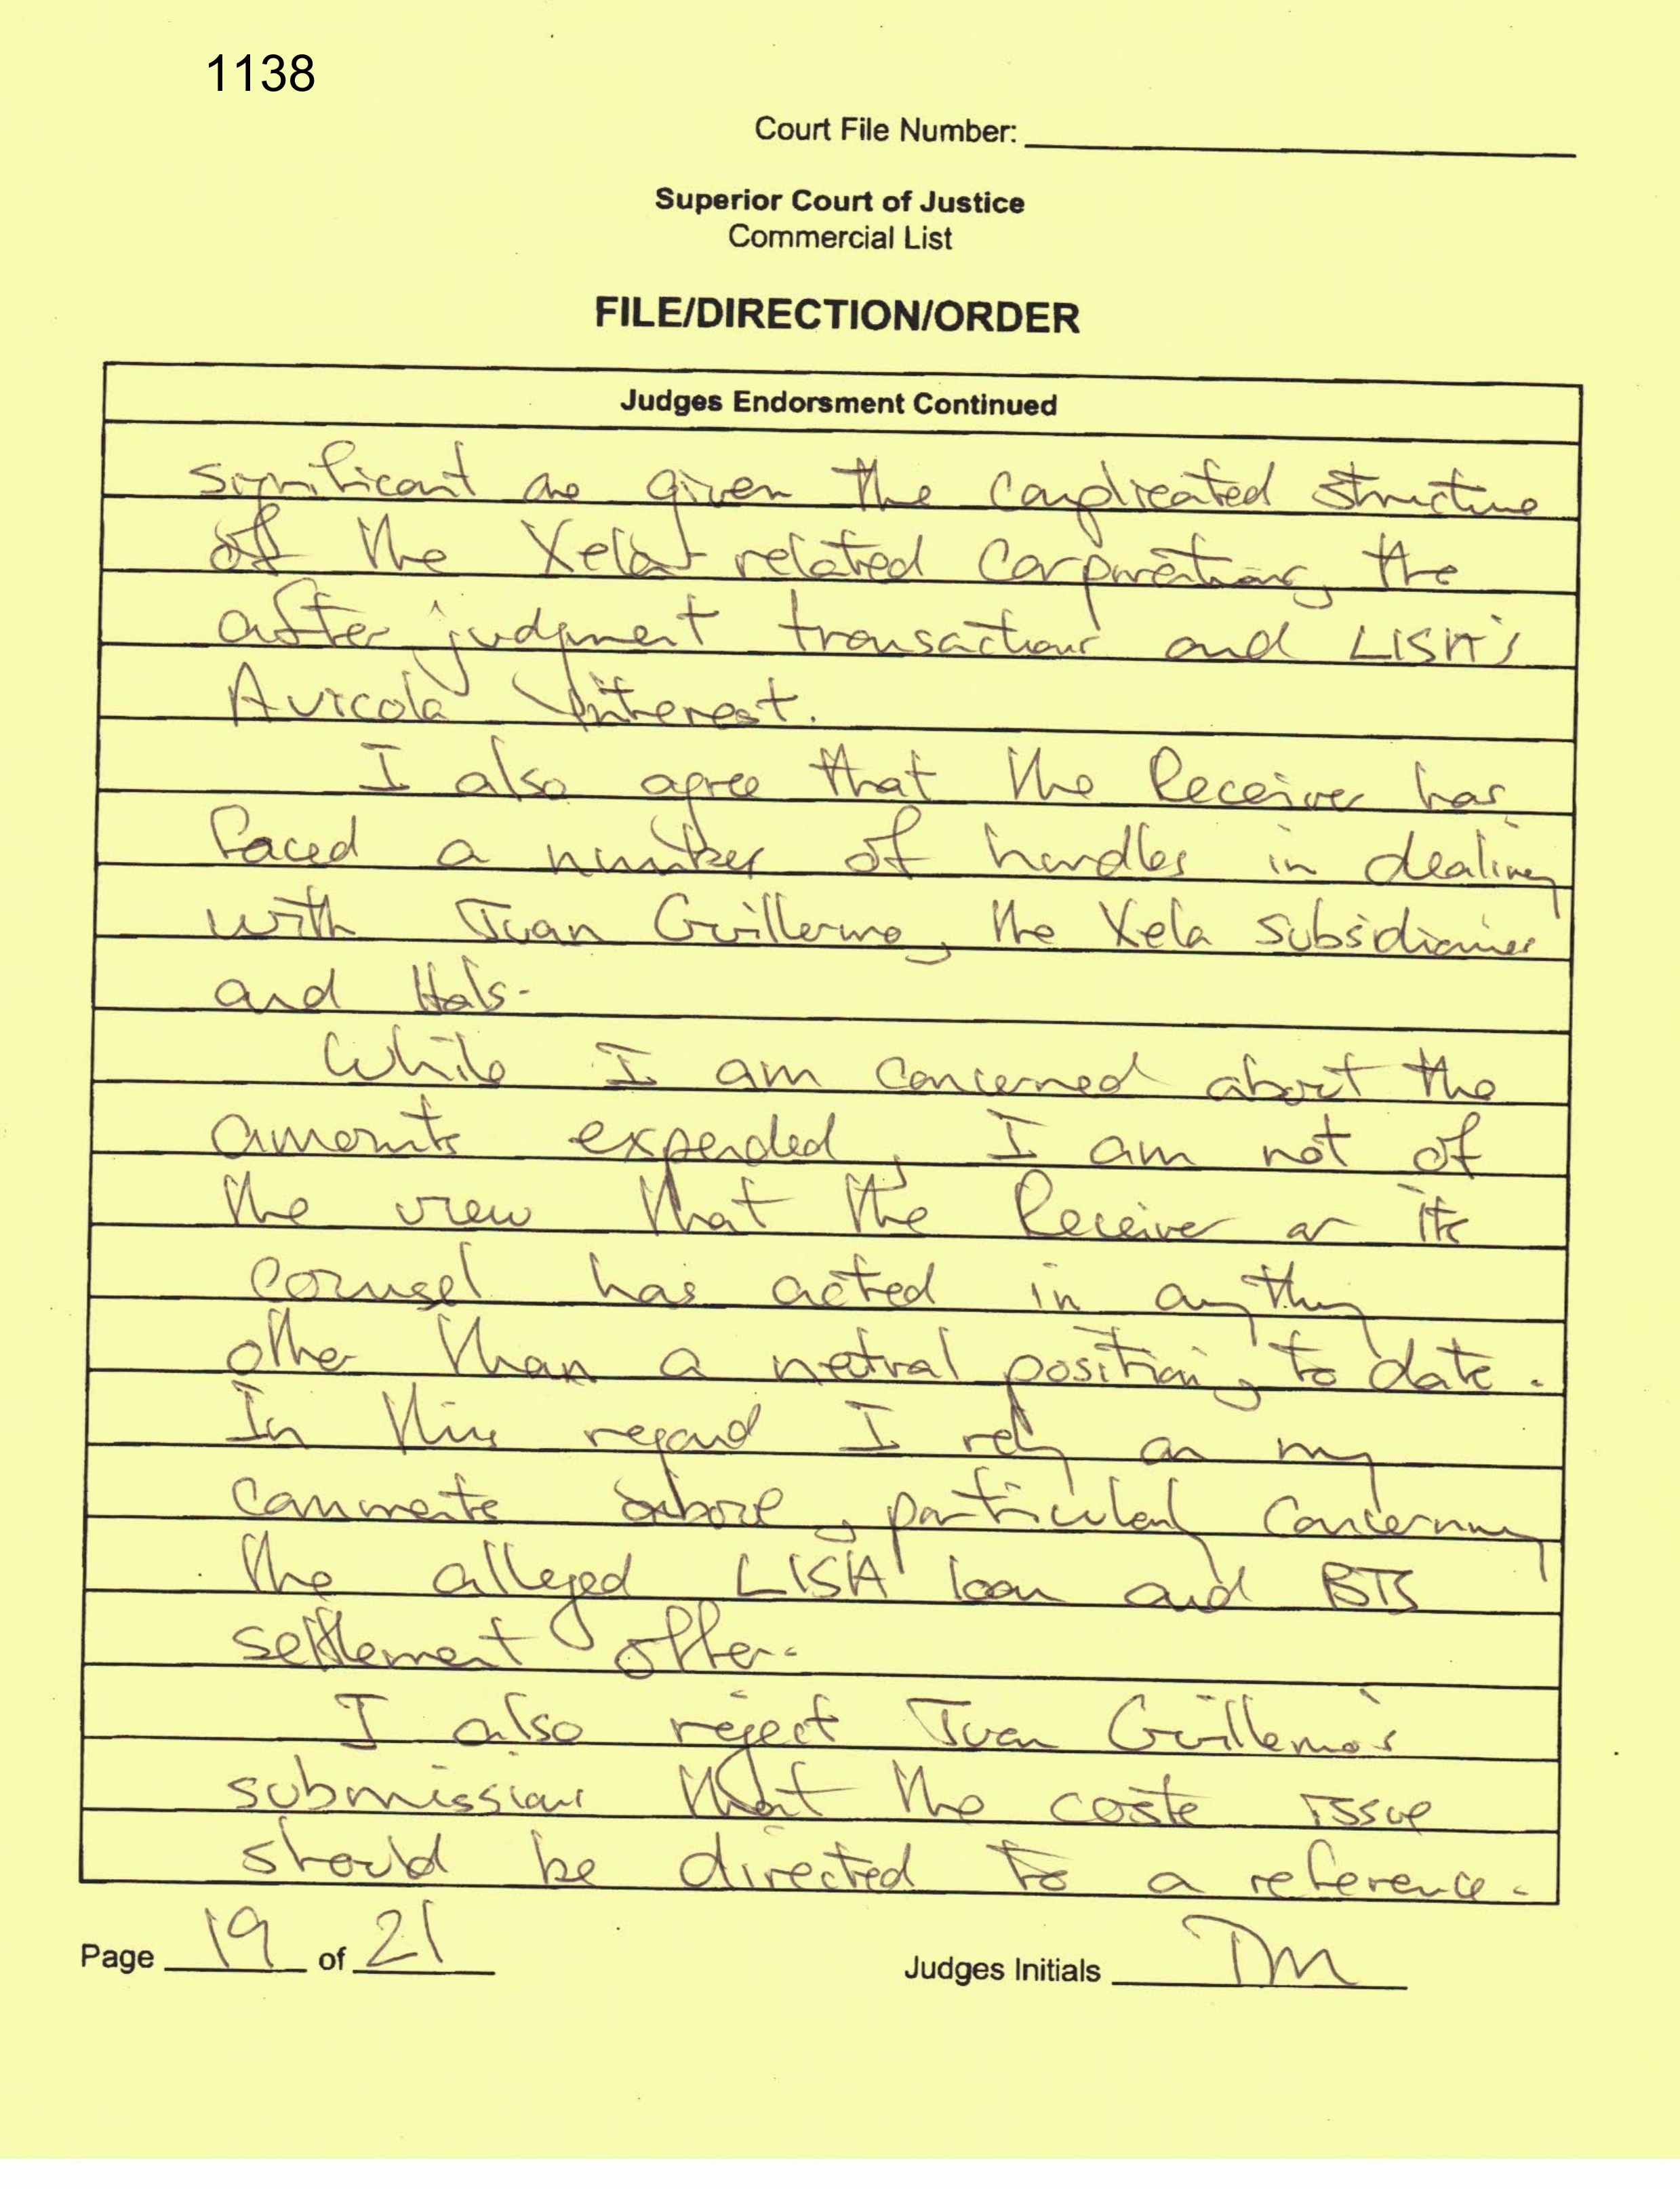 1138
Court File Number:
Superior Court of Justice
Commercial List
FILE/DIRECTION/ORDER
Judges Endorsment Continued
significant are given the complicated structure
of the Xela related corporations, the
after judgment transactions and LISA's
Avicola interest.
I also agree that the Receiver has
faced a number of hurdles in dealing
with Juan Guillermo, the Xela subsidiaries
and Hals.
While I am concerned about the
amounts expended, I am not of
the view that the Receiver or its
counsel has acted in anything
other than a netral position, to date.
In this regard I rely on my
comments above, particularly concerning
the alleged LISA loan and BTS
settlement offer.
I also reject Juan Guillermo's
submissions that the costs issue
should be directed to a reference.
Page 19 of 21
Judges Initials DM